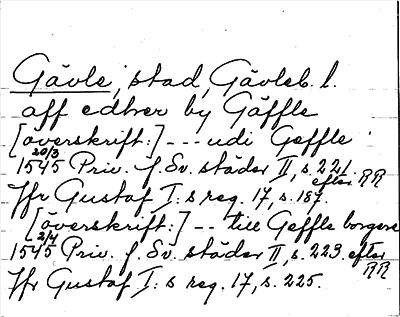 Gävle, stad, Gävleb. l.
aff edher by Gäffle
[överskrift:] --- udi Geffle
20/3
1545 Priv. f. Sv. städer II, s. 221. efter RR
Jfr Gustaf I:s reg. 17, s. 187.
[överskrift:] -- till Geffle borgere
2/4
1545 Priv. f. Sv. städer II, s. 223. efter RR
Jfr Gustaf I:s reg. 17, s. 225.